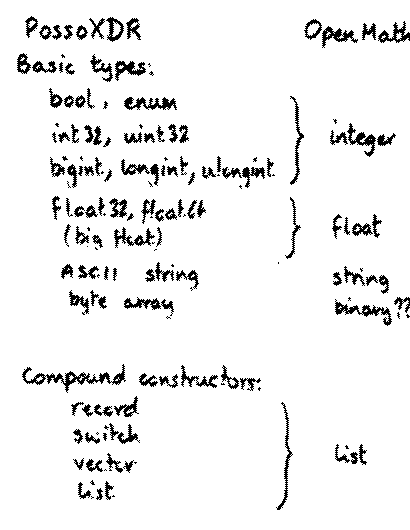 PossoXDR OpenMath
Basic types:
bool, enum
int32, uint32 integer
bigint, longint, ulongint
float32, float64 float
(big float)
ASCII string string
byte array binary??
Compound constructors:
record
switch
vector list
list